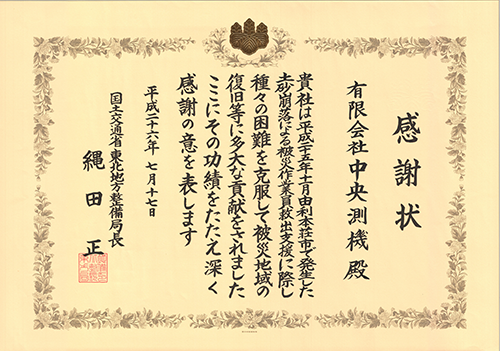 感謝状
有限会社中央測機殿
貴社は平成二十五年十一月由利本荘市で発生した
土砂崩落による被災作業員救出支援に際し
種々の困難を克服して被災地域の
復旧等に多大な貢献をされました
ここにその功績をたたえ深く
感謝の意を表します
平成二十六年七月十七日
国土交通省東北地方整備局長
縄田正